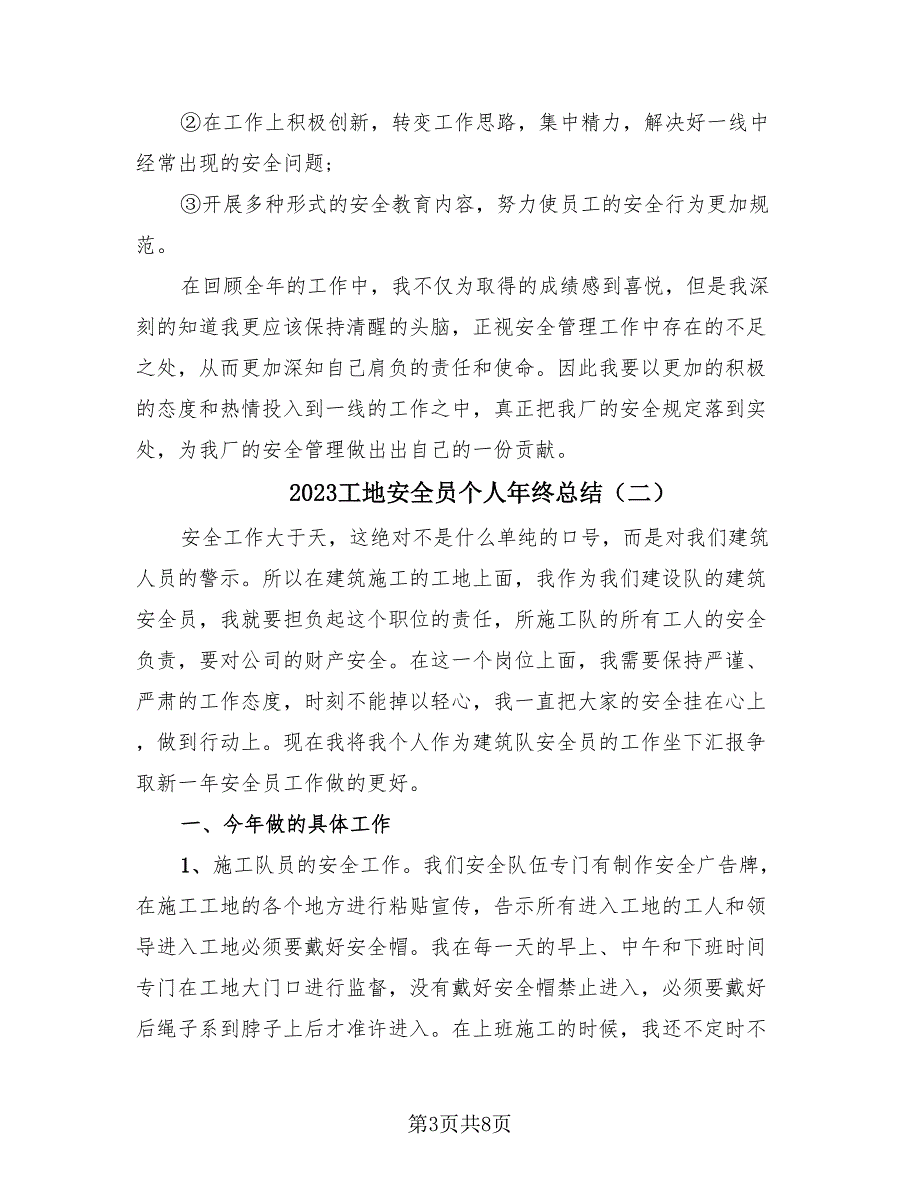 ②在工作上积极创新，转变工作思路，集中精力，解决好一线中
经常出现的安全问题;
③开展多种形式的安全教育内容，努力使员工的安全行为更加规
范。
在回顾全年的工作中，我不仅为取得的成绩感到喜悦，但是我深
刻的知道我更应该保持清醒的头脑，正视安全管理工作中存在的不足
之处，从而更加深知自己肩负的责任和使命。因此我要以更加的积极
的态度和热情投入到一线的工作之中，真正把我厂的安全规定落到实
处，为我厂的安全管理做出出自己的一份贡献。
2023工地安全员个人年终总结（二）
安全工作大于天，这绝对不是什么单纯的口号，而是对我们建筑
人员的警示。所以在建筑施工的工地上面，我作为我们建设队的建筑
安全员，我就要担负起这个职位的责任，所施工队的所有工人的安全
负责，要对公司的财产安全。在这一个岗位上面，我需要保持严谨、
严肃的工作态度，时刻不能掉以轻心，我一直把大家的安全挂在心上
，做到行动上。现在我将我个人作为建筑队安全员的工作坐下汇报争
取新一年安全员工作做的更好。
一、今年做的具体工作
1、施工队员的安全工作。我们安全队伍专门有制作安全广告牌，
在施工工地的各个地方进行粘贴宣传，告示所有进入工地的工人和领
导进入工地必须要戴好安全帽。我在每一天的早上、中午和下班时间
专门在工地大门口进行监督，没有戴好安全帽禁止进入，必须要戴好
后绳子系到脖子上后才准许进入。在上班施工的时候，我还不定时不
第3页共8页